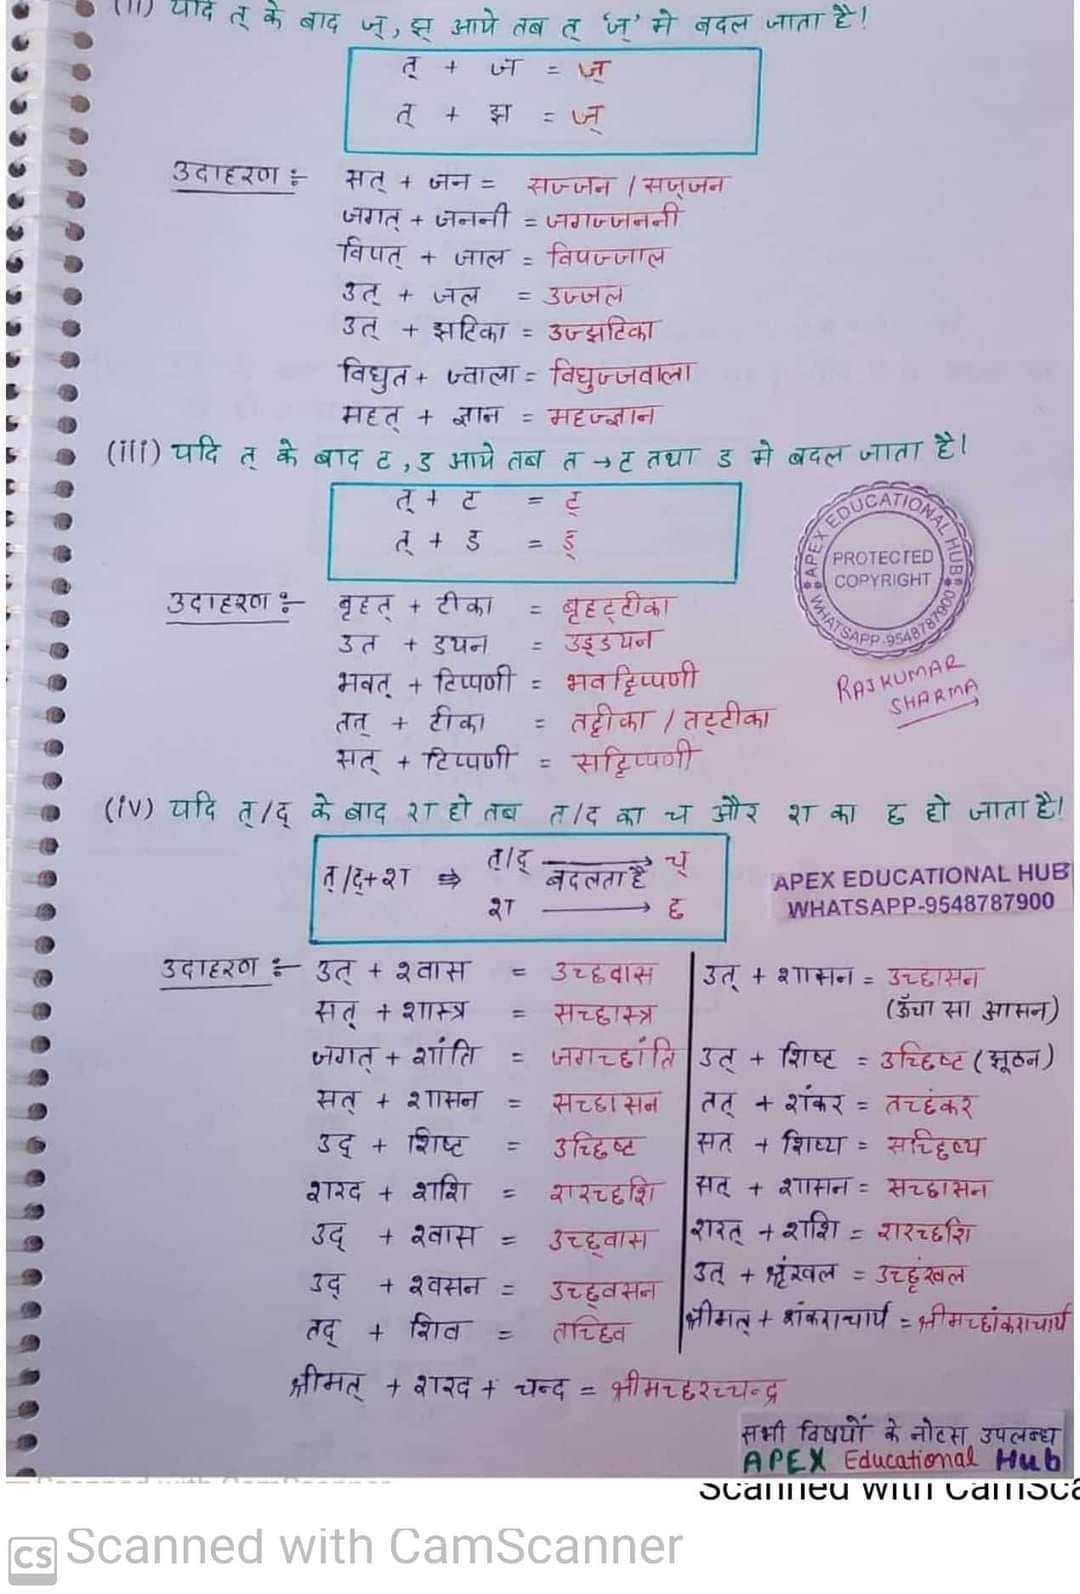 (ii) यदि त् के बाद ज्, झ् आये तब त् 'ज्' मे बदल जाता है!
त् + ज = ज्
त् + झ = ज्
उदाहरण :- सत् + जन = सज्जन / सज्‌जन
जगत् + जननी = जगज्जननी
विपत् + जाल = विपज्जाल
उत् + जल = उज्जल
उत् + झटिका = उज्झटिका
विधुत + ज्वाला = विधुज्जवाला
महत् + ज्ञान = महज्ज्ञान
(iii) यदि त् के बाद ट, ड आये तब त → ट तथा ड मे बदल जाता है।
त् + ट = ट्
त् + ड = ड्
उदाहरण :- बृहत् + टीका = बृहट्टीका
उत + डयन = उड्डयन
भवत् + टिप्पणी = भवट्टिप्पणी
तत् + टीका = तट्टीका / तट्‌टीका
सत् + टिप्पणी = सट्टिप्पणी
APEX EDUCATIONAL HUB
PROTECTED
COPYRIGHT
WHATSAPP-9548787900
RAJKUMAR
SHARMA
(iv) यदि त्/द् के बाद श हो तब त/द का च और श का छ हो जाता है!
त्/द्+श ⇒ त्/द् → च्
बदलता है
श → छ
APEX EDUCATIONAL HUB
WHATSAPP-9548787900
उदाहरण :- उत् + श्वास = उच्छवास
सत् + शास्त्र = सच्छास्त्र
जगत् + शांति = जगच्छांति
सत् + शासन = सच्छासन
उद् + शिष्ट = उच्छिष्ट
शरद + शशि = शरच्छशि
उद् + श्वास = उच्छ्वास
उद् + श्वसन = उच्छ्वसन
तद् + शिव = तच्छिव
उत् + शासन = उच्छासन
(ऊँचा सा आसन)
उत् + शिष्ट = उच्छिष्ट (झूठन)
तत् + शंकर = तच्छंकर
सत + शिष्य = सच्छिष्य
सत् + शासन = सच्छासन
शरत् + शशि = शरच्छशि
उत् + श्रृंखल = उच्छृंखल
श्रीमत् + शंकराचार्य = श्रीमच्छंकराचार्य
श्रीमत् + शरद + चन्द = श्रीमच्छरच्चन्द्र
सभी विषयों के नोटस उपलब्ध
APEX Educational Hub
Scanned with CamSca
CS Scanned with CamScanner